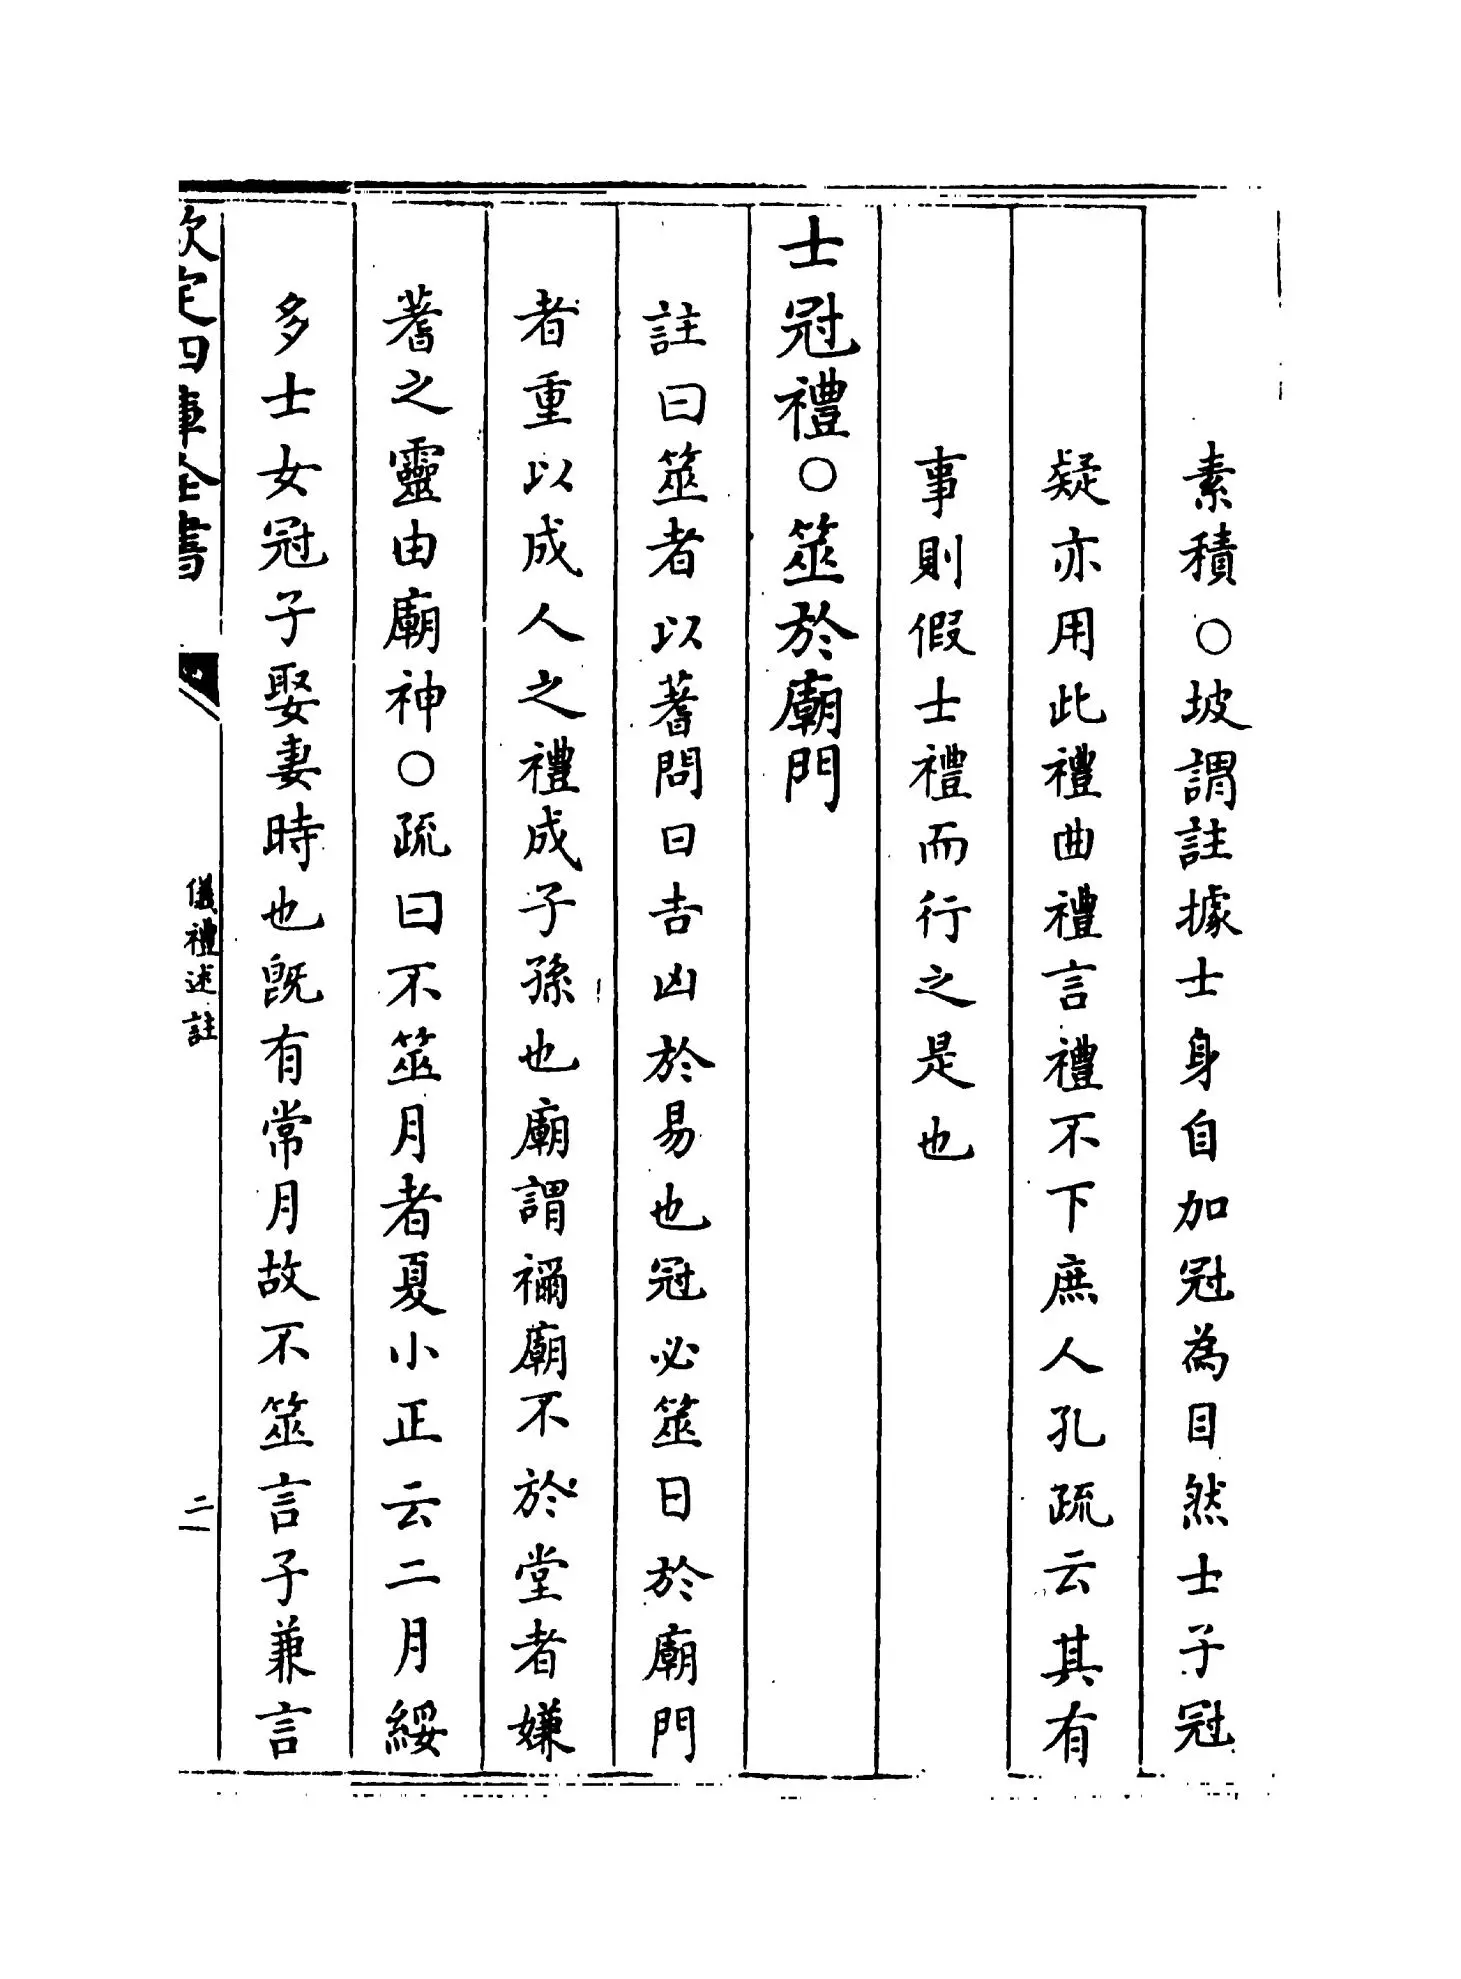 素積○坡謂註據士身自加冠為目然士子冠
疑亦用此禮曲禮言禮不下庶人孔疏云其有
事則假士禮而行之是也
士冠禮○筮於廟門
註曰筮者以蓍問曰吉凶於易也冠必筮日於廟門
者重以成人之禮成子孫也廟謂禰廟不於堂者嫌
蓍之靈由廟神○疏曰不筮月者夏小正云二月綏
多士女冠子娶妻時也旣有常月故不筮言子兼言
欽定四庫全書
儀禮述註
二